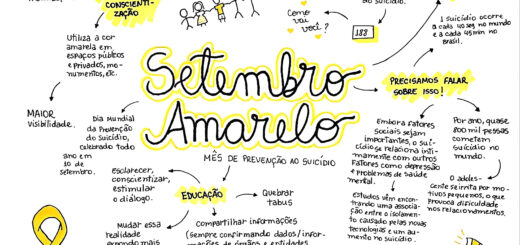 CONSCIENTI-
ZAÇÃO
Utiliza a cor
amarela em
espaços públicos
e privados, mo-
numentos, etc.
MAIOR
visibilidade.
Dia Mundial
da Prevenção
do Suicídio,
celebrado todo
ano em
10 de
setembro.
Como
vai
você?
188
1 suicídio ocorre
a cada
e a cada 45 min no
Brasil.
Setembro
Amarelo
MÊS DE PREVENÇÃO AO SUICÍDIO
PRECISAMOS FALAR
SOBRE ISSO!
Embora fatores
sociais sejam
importantes, o sui-
cídio se relaciona inti-
mamente com outros
fatores como depressão
e problemas de saúde
mental.
Estudos vêm encon-
trando uma associa-
ção entre o isolamen-
to causado pelas novas
tecnologias e um au-
mento no suicídio.
Por ano, quase
800 mil pessoas
cometem
suicídio no
mundo.
O adoles-
cente se irrita por mo-
tivos pequenos, o que
provoca dificuldade
nos relacionamentos.
EDUCAÇÃO
Esclarecer,
conscientizar,
estimular
o diálogo.
Quebrar
tabus
Mudar essa
realidade
Compartilhar informações
(sempre confirmando dados/infor-